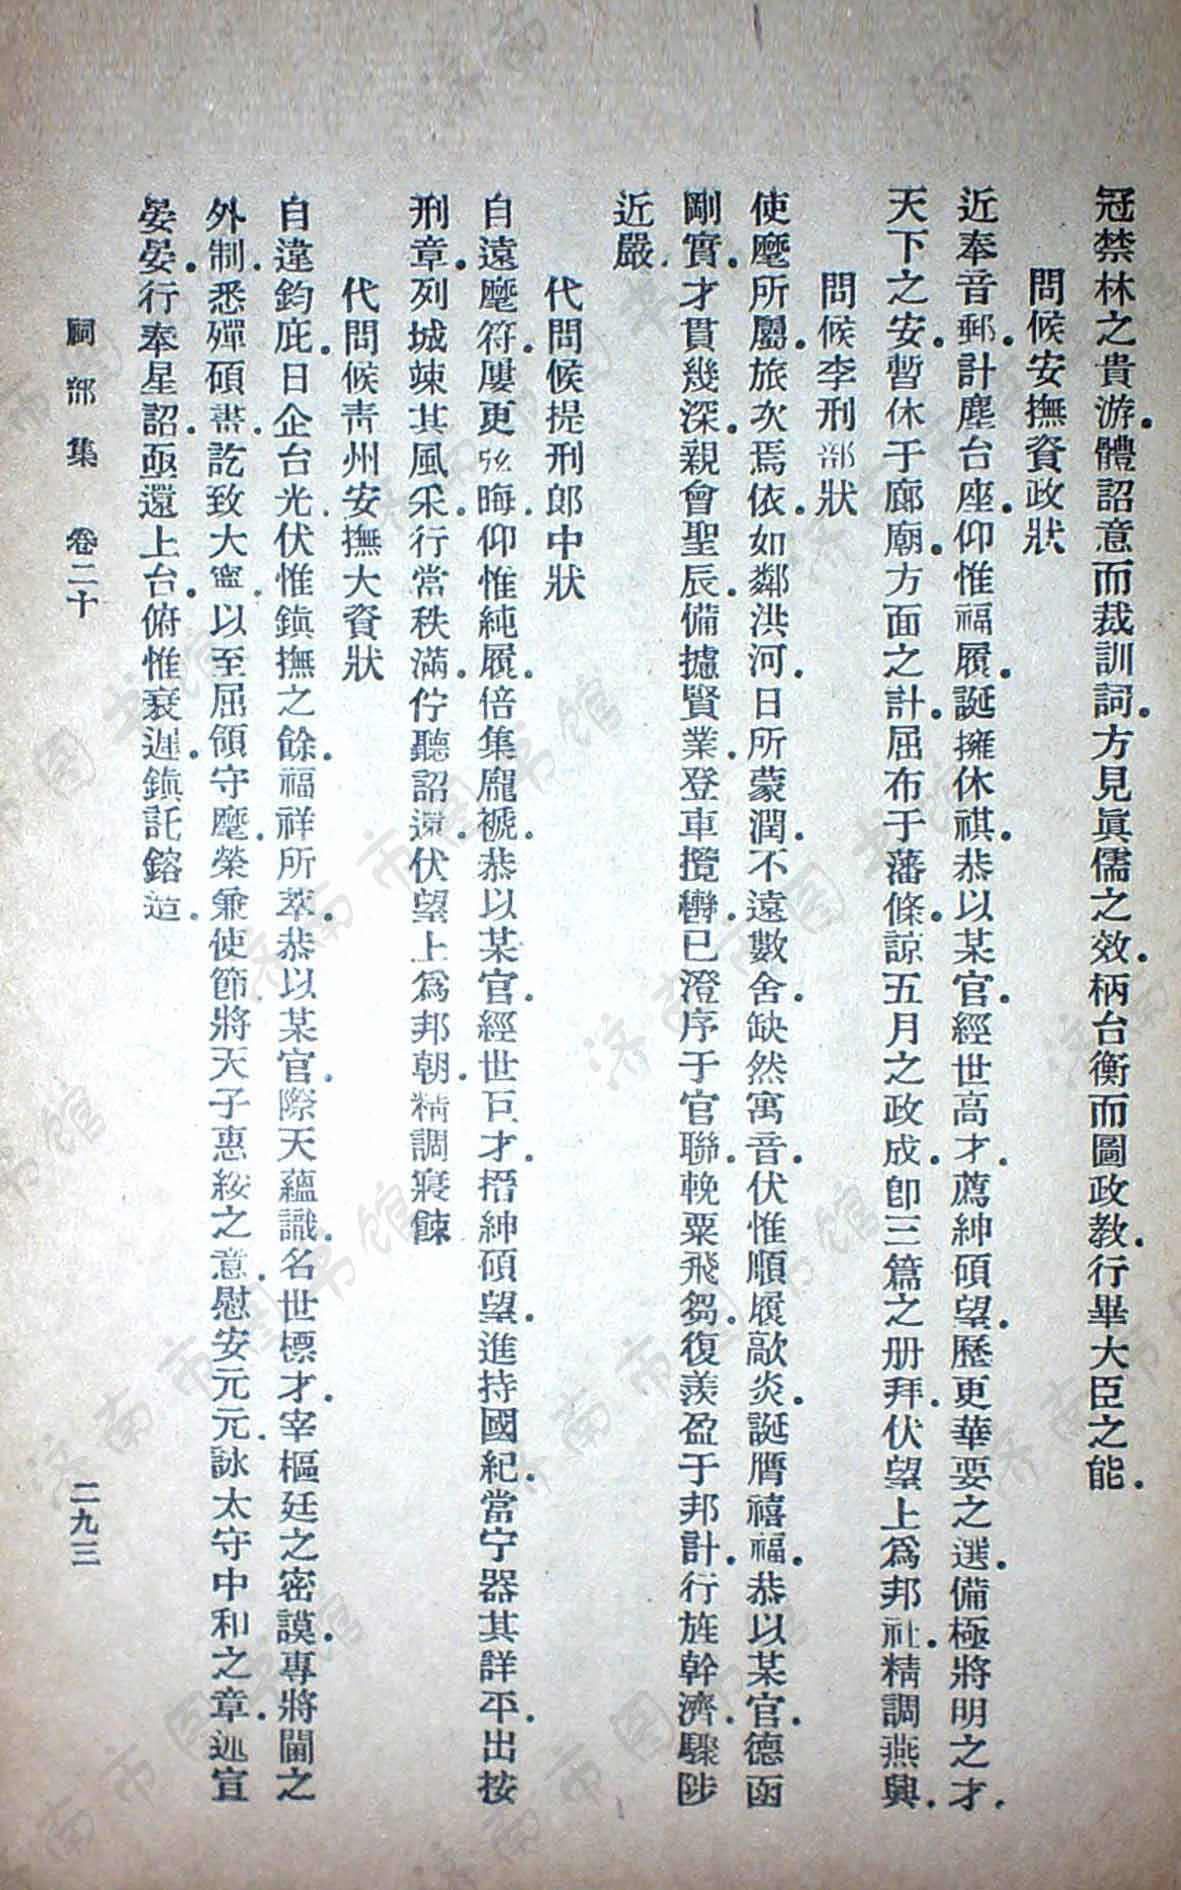 冠禁林之貴游。體詔意而裁訓詞。方見眞儒之效。柄台衡而圖政教。行畢大臣之能。
問候安撫資政狀
近奉音郵。計塵台座。仰惟福履。誕擁休祺。恭以某官。經世高才。薦紳碩望。歷更華要之選。備極將明之才。
天下之安。暫休于廊廟。方面之計。屈布于藩條。諒五月之政成。卽三篇之册拜。伏望上爲邦社。精調燕興。
問候李刑部狀
使麾所屬。旅次焉依。如鄰洪河。日所蒙潤。不遠數舍。缺然寓音。伏惟順履歊炎。誕膺禧福。恭以某官。德函
剛實。才貫幾深。親會聖辰。備攄賢業。登車攬轡。已澄序于官聯。輓粟飛芻。復羨盈于邦計。行旌幹濟。驟陟
近嚴。
代問候提刑郎中狀
自遠麾符。屢更弦晦。仰惟純履。倍集龐褫。恭以某官。經世巨才。搢紳碩望。進持國紀。當宁器其詳平。出按
刑章。列城竦其風采。行當秩滿。佇聽詔還。伏望上爲邦朝。精調寢餗
代問候青州安撫大資狀
自違鈞庇。日企台光。伏惟鎮撫之餘。福祥所萃。恭以某官。際天蘊識。名世標才。宰樞廷之密謨。專將閫之
外制。悉殫碩畫。訖致大寧。以至屈領守麾。榮兼使節。將天子惠綏之意。慰安元元。詠太守中和之章。遄宣
晏晏。行奉星詔。亟還上台。俯惟衰遲。鎮託鎔造。
祠部集 卷二十
二九三
济南市图书馆